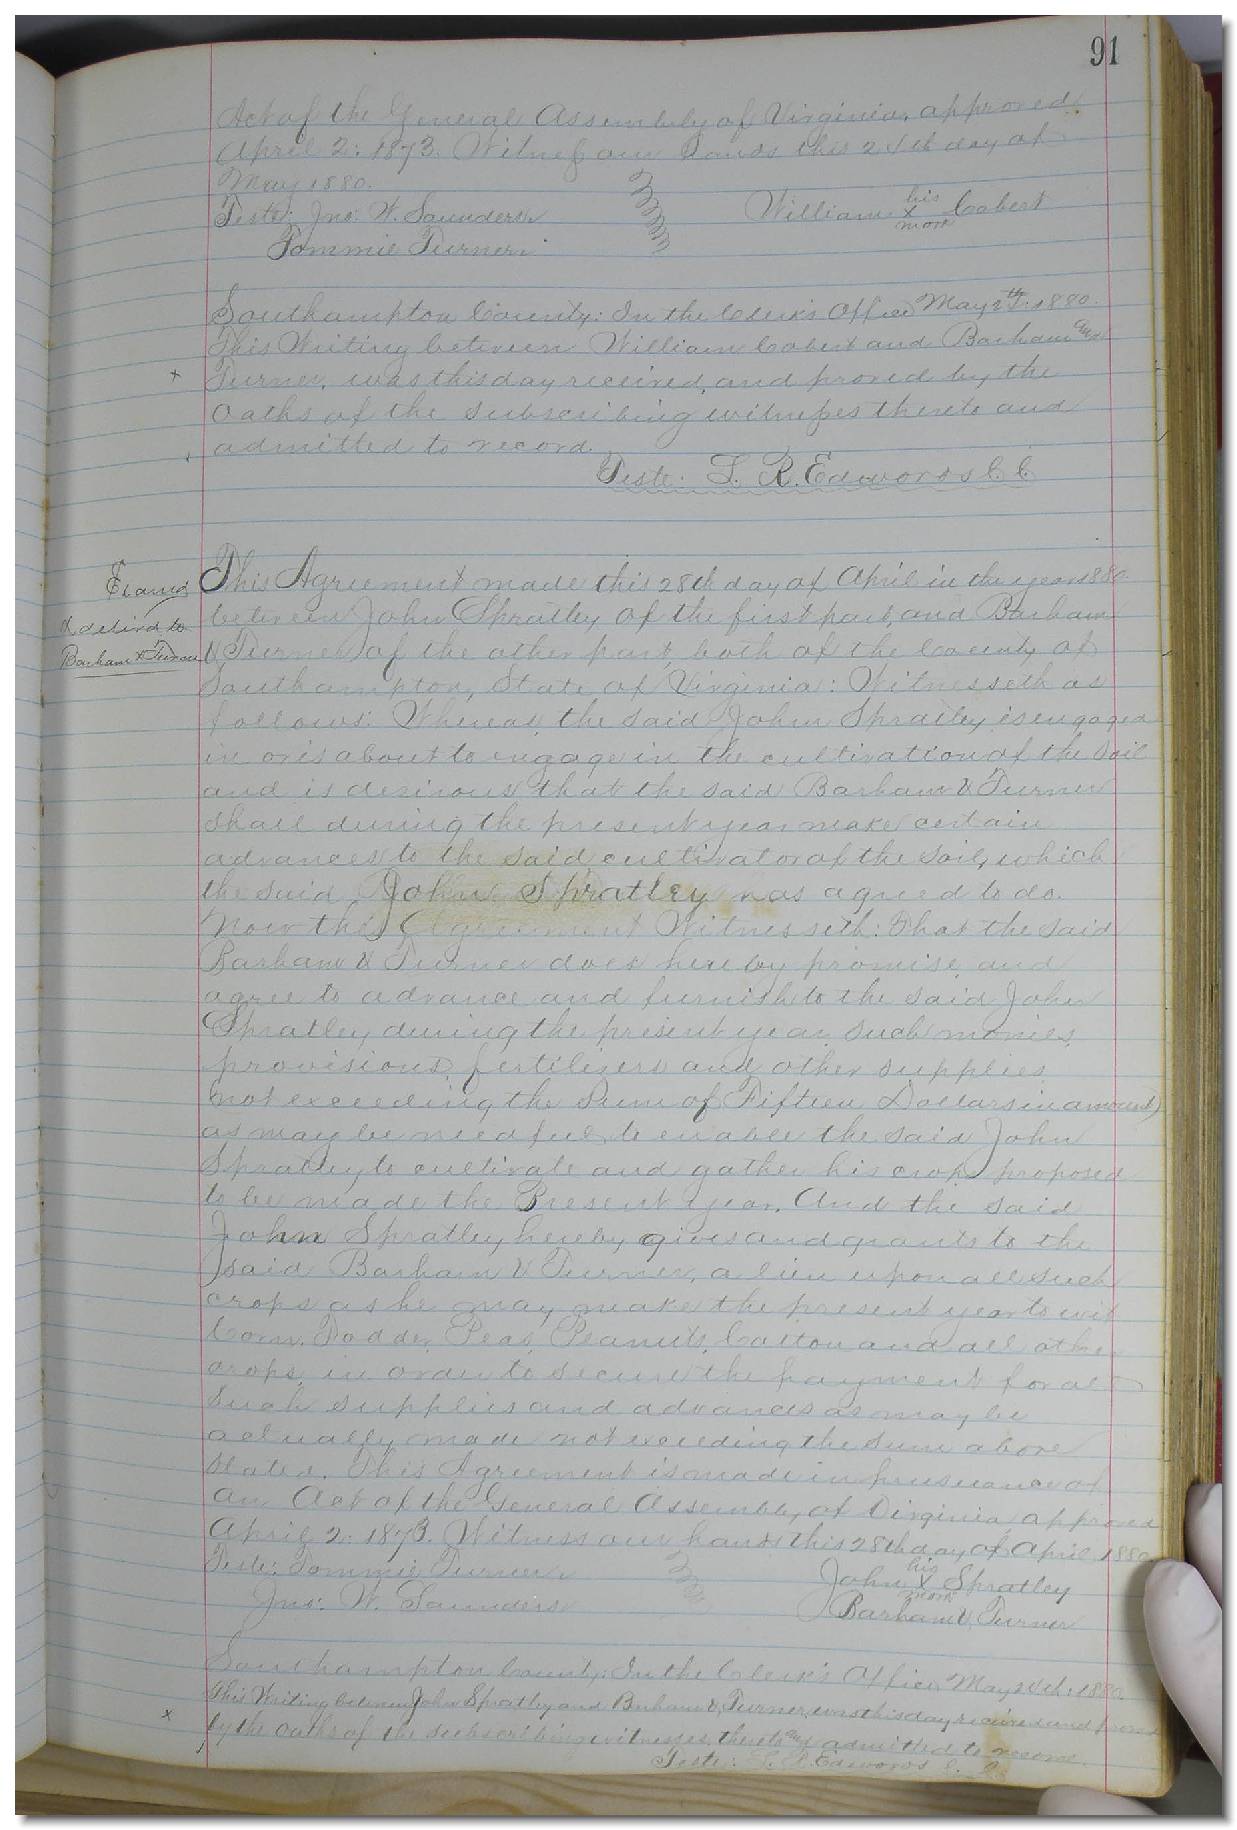 91
Act of the General Assembly of Virginia, approved
April 2: 1873. Witness our hands this 24th day of
May 1880.
Teste: Jno: W. Saunders
William his x mark Cobert
Tommie Turner
Southampton County: In the Clerk's Office May 1880.
This Writing between William Cobert and Barham and
Turner, was this day received, and proved by the
Oaths of the subscribing witnesses thereto and
admitted to record.
Teste: L. R. Edwards C. C.
Examd
& delivd to
Barham & Turner
This Agreement made this 28th day of April in the year 1880
between John Spratley of the first part, and Barham
& Turner of the other part, both of the County of
Southampton, State of Virginia: Witnesseth as
follows: Whereas, the said John Spratley is engaged
in or is about to engage in the cultivation of the soil
and is desirous that the said Barham & Turner
shall during the present year make certain
advances to the said cultivator of the soil, which
the said John Spratley has agreed to do.
Now this Agreement Witnesseth: That the said
Barham & Turner does hereby promise and
agree to advance and furnish to the said John
Spratley during the present year, such monies,
provisions, fertilizers and other supplies
not exceeding the Sum of Fifteen Dollars in amount)
as may be needful to enable the said John
Spratley to cultivate and gather his crops proposed
to be made the Present year. And the said
John Spratley hereby gives and grants to the
said Barham & Turner, a lien upon all such
crops as he may make the present year to wit
Corn, Fodder, Peas, Peanuts, Cotton and all other
crops, in order to secure the payment for all
Such supplies and advances as may be
actually made not exceeding the sum above
stated. This Agreement is made in pursuance of
an Act of the General Assembly of Virginia approved
April 2: 1873. Witness our hands this 28th day of April 1880
Teste: Tommie Turner
John his x mark Spratley
Jno: W. Saunders
Barham & Turner
Southampton County: In the Clerk's Office May 24th: 1880.
This Writing between John Spratley and Barham & Turner, was this day received and proved
by the oaths of the subscribing witnesses thereto and admitted to record.
Teste: L. R. Edwards C. C.